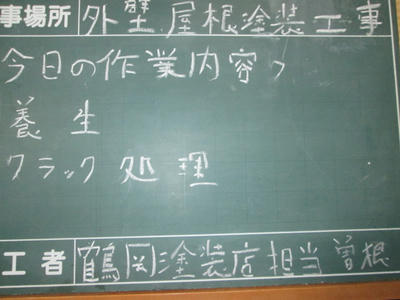 事場所 外壁屋根塗装工事
今日の作業内容
養生
クラック処理
工者 鶴岡塗装店 担当 曽根